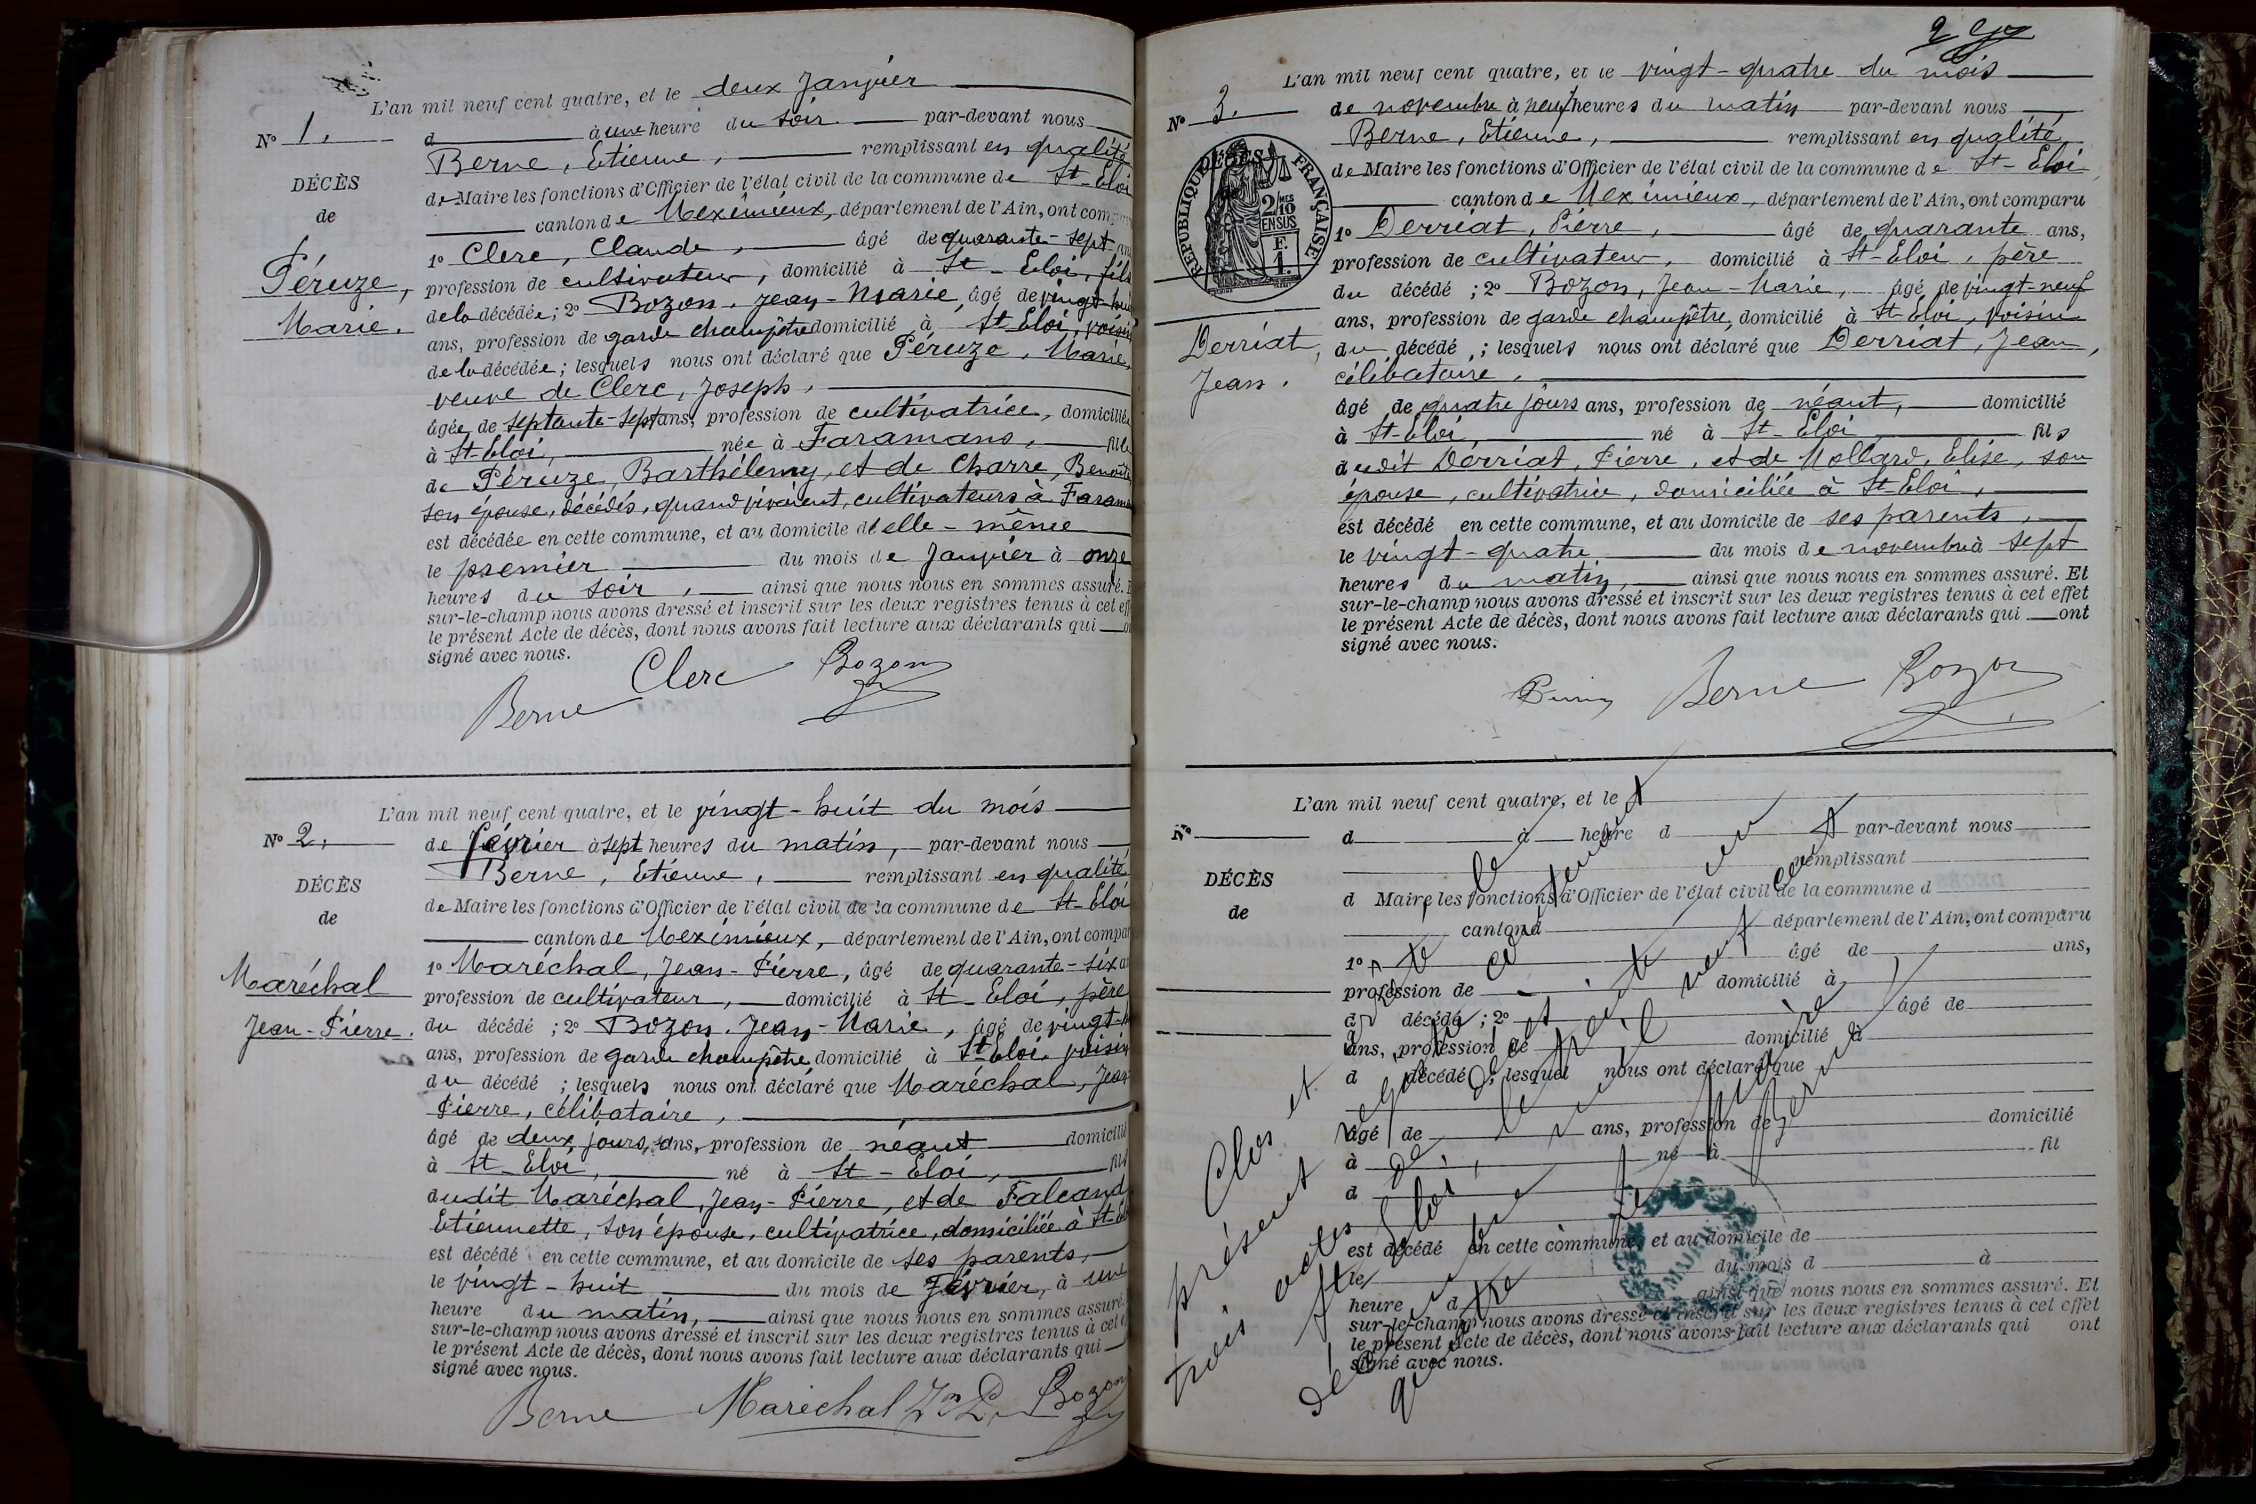 L'an mil neuf cent quatre, et le deux Janvier
N° 1.
d à une heure du soir par-devant nous
Berne, Etienne, remplissant en qualité
DÉCÈS
de Maire les fonctions d'Officier de l'état civil de la commune de St-Eloi
de
canton de Meximieux, département de l'Ain, ont comparu
1° Clerc, Claude, âgé de quarante-sept ans
Péruze,
profession de cultivateur, domicilié à St-Eloi, fils
Marie.
de la décédée; 2° Bozon, Jean-Marie, âgé de vingt-huit
ans, profession de garde champêtre domicilié à St Eloi, voisin
de la décédée; lesquels nous ont déclaré que Péruze, Marie,
veuve de Clerc, Joseph,
âgée de septante-sept ans, profession de cultivatrice, domiciliée
à St-Eloi, née à Faramans, fille
de Péruze, Barthélemy, et de Charre, Benoite
son épouse, décédés, quand vivaient, cultivateurs à Faramans
est décédée en cette commune, et au domicile d'elle-même
le premier du mois de Janvier à onze
heures du soir, ainsi que nous nous en sommes assuré. E
sur-le-champ nous avons dressé et inscrit sur les deux registres tenus à cet eff
le présent Acte de décès, dont nous avons fait lecture aux déclarants qui o
signé avec nous.
Berne Clerc Bozon
L'an mil neuf cent quatre, et le vingt-huit du mois
N° 2.
de février à sept heures du matin, par-devant nous
Berne, Etienne, remplissant en qualité
DÉCÈS
de Maire les fonctions d'Officier de l'état civil de la commune de St-Eloi
de
canton de Meximieux, département de l'Ain, ont compar
1° Maréchal, Jean-Pierre, âgé de quarante-six a
Maréchal
profession de cultivateur, domicilié à St-Eloi, père
Jean-Pierre.
du décédé; 2° Bozon, Jean-Marie, âgé de vingt-h
ans, profession de garde champêtre, domicilié à St Eloi, voisin
du décédé; lesquels nous ont déclaré que Maréchal, Jean
Pierre, célibataire,
âgé de deux jours, ans, profession de néant domicilié
à St-Eloi, né à St-Eloi, fils
dudit Maréchal, Jean-Pierre, et de Falcand
Etiennette, son épouse, cultivatrice, domiciliée à St-Elo
est décédé en cette commune, et au domicile de ses parents,
le vingt-huit du mois de Février, à une
heure du matin, ainsi que nous nous en sommes assuré.
sur-le-champ nous avons dressé et inscrit sur les deux registres tenus à cet e
le présent Acte de décès, dont nous avons fait lecture aux déclarants qui
signé avec nous.
Berne Maréchal Jn P. Bozon
L'an mil neuf cent quatre, et le vingt-quatre du mois
N° 3.
de novembre à neuf heures du matin par-devant nous
Berne, Etienne, remplissant en qualité
de Maire les fonctions d'Officier de l'état civil de la commune de St-Eloi
RÉPUBLIQUE FRANÇAISE
DÉCÈS
2/10 MES EN SUS
F. 1.
canton de Meximieux, département de l'Ain, ont comparu
1° Derriat, Pierre, âgé de quarante ans,
profession de cultivateur, domicilié à St-Eloi, père
du décédé; 2° Bozon, Jean-Marie, âgé de vingt-neuf
ans, profession de garde champêtre, domicilié à St-Eloi, voisin
Derriat,
du décédé; lesquels nous ont déclaré que Derriat, Jean,
Jean.
célibataire,
âgé de quatre jours ans, profession de néant, domicilié
à St-Eloi, né à St-Eloi fils
dudit Derriat, Pierre, et de Mollard, Elise, son
épouse, cultivatrice, domiciliée à St-Eloi,
est décédé en cette commune, et au domicile de ses parents,
le vingt-quatre du mois de novembre à sept
heures du matin, ainsi que nous nous en sommes assuré. Et
sur-le-champ nous avons dressé et inscrit sur les deux registres tenus à cet effet
le présent Acte de décès, dont nous avons fait lecture aux déclarants qui ont
signé avec nous.
Berne Bozon
L'an mil neuf cent quatre, et le
N°
d à heure d par-devant nous
remplissant
DÉCÈS
d Maire les fonctions d'Officier de l'état civil de la commune d
de
canton d département de l'Ain, ont comparu
1° âgé de ans,
profession de domicilié à
d décédé; 2° âgé de
ans, profession de domicilié à
d décédé; lesquel nous ont déclaré que
âgé de ans, profession de domicilié
à né à fil
d
est décédé en cette commune, et au domicile de
le du mois d à
heure d ainsi que nous nous en sommes assuré. Et
sur-le-champ nous avons dressé et inscrit sur les deux registres tenus à cet effet
le présent Acte de décès, dont nous avons fait lecture aux déclarants qui ont
signé avec nous.
Clos et arrêté le
présent registre contenant
trois actes de décès
St Eloi, le trente et un
décembre mil neuf cent
quatre
Le Maire
Berne
MAIRIE